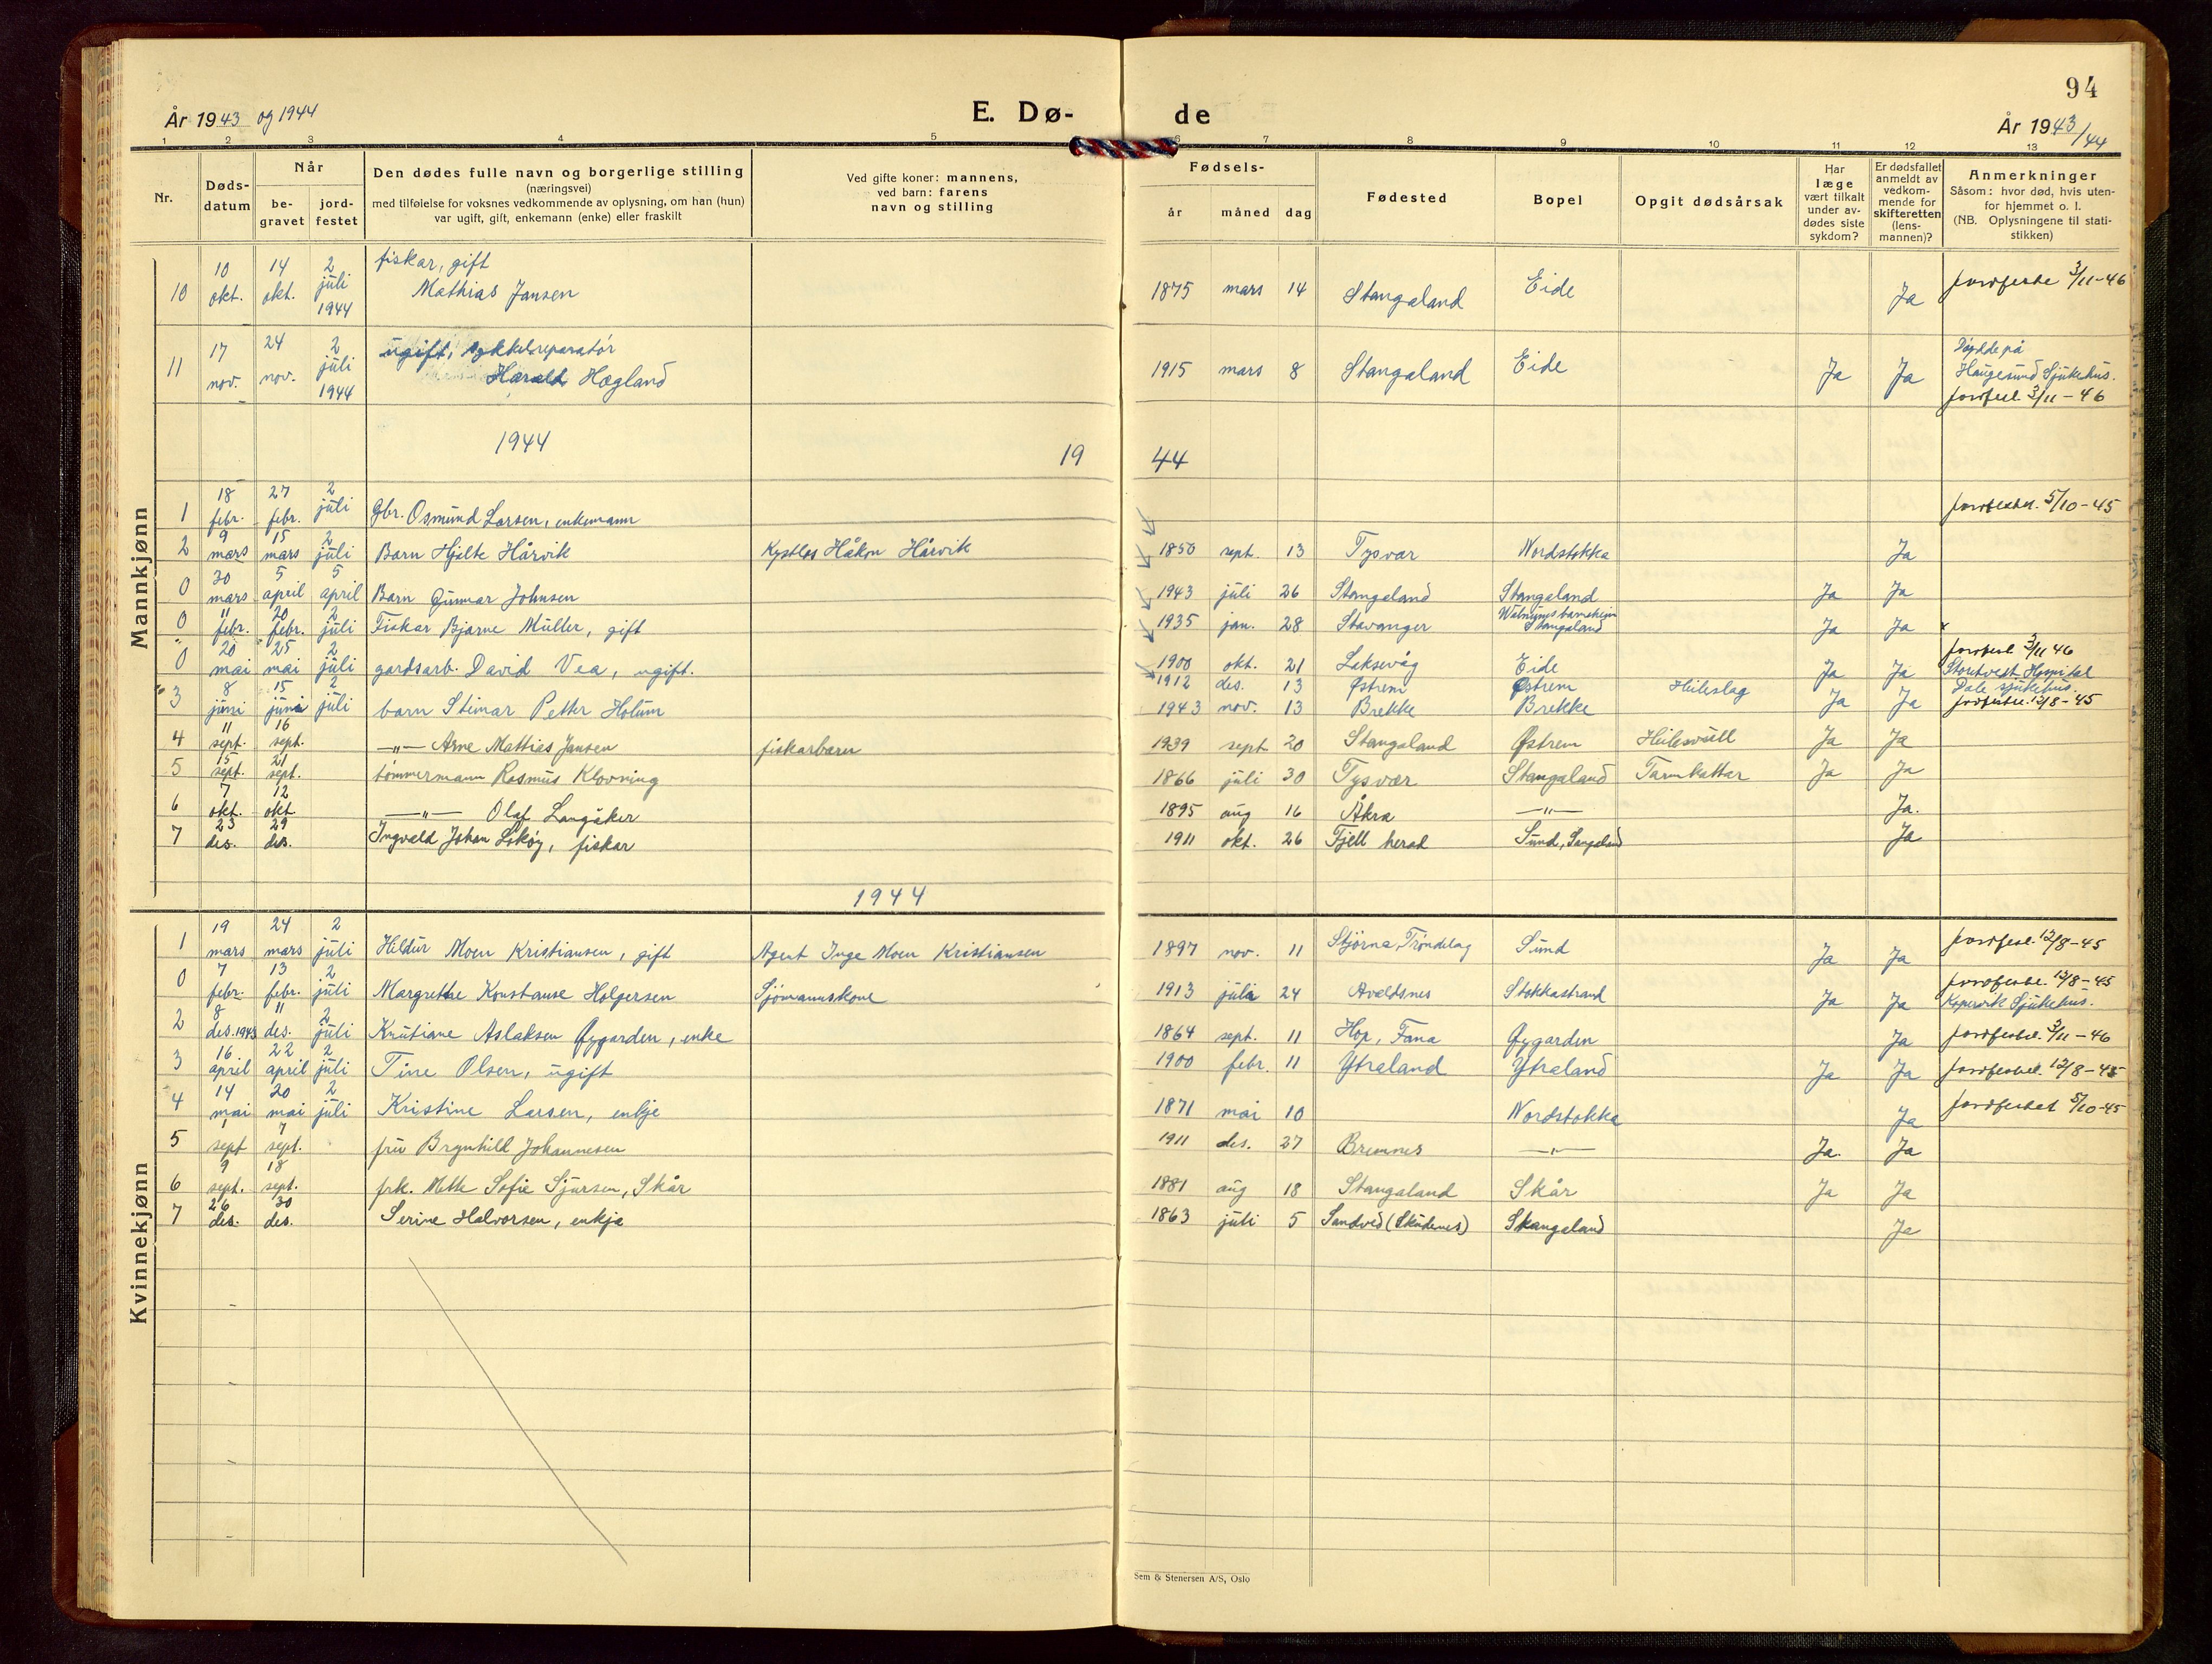 94
År 1943 og 1944
E. Dø-
de
År 1943/44
1 2 3 4 5 6 7 8 9 10 11 12 13
Nr.
Døds-
datum
Når
be-
gravet
jord-
festet
Den dødes fulle navn og borgerlige stilling
(næringsvei)
med tilføielse for voksnes vedkommende av oplysning, om han (hun)
var ugift, gift, enkemann (enke) eller fraskilt
Ved gifte koner: mannens,
ved barn: farens
navn og stilling
Fødsels-
år måned dag
Fødested
Bopel
Opgit dødsårsak
Har
læge
vært tilkalt
under av-
dødes siste
sykdom?
Er dødsfallet
anmeldt av
vedkom-
mende for
skifteretten
(lens-
mannen)?
Anmerkninger
Såsom: hvor død, hvis uten-
for hjemmet o. l.
(NB. Oplysningene til stati-
stikken)
Mannkjønn
10 10 okt. 14 okt. 2 juli 1944 fiskar, gift
Mathias Jansen 1875 mars 14 Stangaland Eide Ja 3/11-46
11 17 nov. 24 nov. 2 juli 1944 ugift,
Harald Hægland 1915 mars 8 Stangaland Eide Ja Ja Døydde på
Haugesund Sjukehus.
3/11-46
1944
19 44
1 18 febr. 27 febr. 2 juli Gbr. Osmund Larsen, enkemann 5/10-45
2 9 mars 15 mars 2 juli Barn Hjalte Hårvik Kystlos Håkon Hårvik 1850 sept. 13 Tysvær Nordstokka Ja
0 30 mars 5 april 5 april Barn Gunnar Johnsen 1943 juli 26 Stangaland Stangaland Ja Ja
0 11 febr. 20 febr. 2 juli Fiskar Bjarne Müller, gift 1935 jan. 28 Stavanger Stangaland Ja Ja
0 20 mai 25 mai 2 juli gardsarb. David Vea, ugift. 1900 okt. 21 Laksevåg Eide Ja Ja 3/11 46
1912 des. 13 Østrem Østrem Heileslag Hospital
3 8 juni 15 juni 2 juli barn Steinar Petter Holum 1943 nov. 13 Brekke Brekke Ja Ja Dale sjukehus.
12/8-45
4 11 sept. 16 sept. —"— Arne Mathias Jansen fiskarbarn 1939 sept 20 Stangaland Østrem Ja Ja
5 15 sept. 21 sept. tømmermann Rasmus Klovning 1866 juli 30 Tysvær Stangaland Ja Ja
6 7 okt. 12 okt —"— Olaf Langåker 1895 aug 16 Åkra —"— Ja.
7 23 des. 29 des. Ingvald Johan Lokøy, fiskar 1911 okt. 26 Fjell herad Sund, Ja
1944
Kvinnekjønn
1 19 mars 24 mars 2 juli Hildur Moen Kristiansen, gift Agent Inge Moen Kristiansen 1897 nov. 11 Stjørna, Trøndelag Sund Ja Ja 12/8-45
0 7 febr. 13 febr. 2 juli Margrethe Konstanse Holgersen Sjømannskone 1913 juli 24 Avaldsnes Stokkastrand Ja Ja 12/8-45
Kopervik Sjukehus.
2 8 des. 1943 11 des. 2 juli Kristiane Aslaksen Øygarden, enke 1864 sept. 11 Hop, Fana Øygarden Ja 3/11-46
3 16 april 22 april 2 juli Tine Olsen, ugift 1900 febr. 11 Ytraland Ytraland Ja Ja 12/8-45
4 14 mai 20 mai 2 juli Kristine Larsen, enkje 1871 mai 10 Nordstokka Ja jordfestet 5/10-45
5 1 sept 7 sept. fru Brynhild Johannesen 1911 des. 27 Bremnes —"— Ja. Ja
6 9 sept. 18 sept. frk. Mette Sofie Sjursen, Skår 1881 aug 18 Stangaland Skår Ja Ja
7 26 des. 30 des. Serine Halvorsen, enkja 1863 juli 5 Sandved (Skudenes) Stangaland Ja
Sem & Stenersen A/S, Oslo